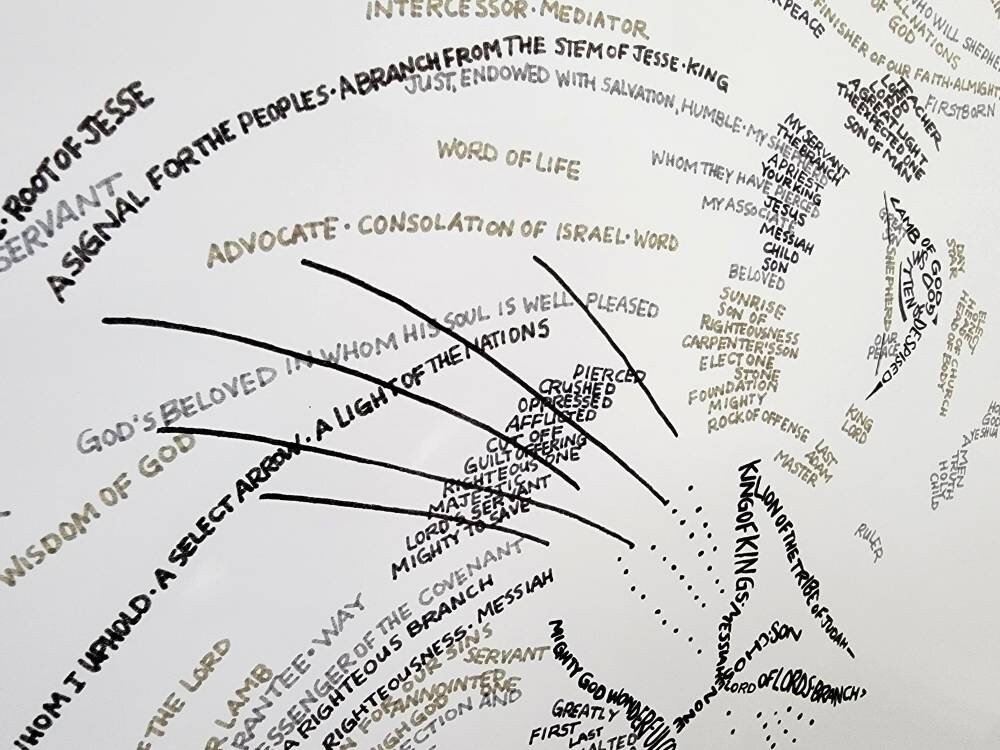 INTERCESSOR·MEDIATOR
PEACE
FINISHER OF OUR FAITH·ALMIGHTY
ALL NATIONS
OF GOD
WHO WILL SHEPHE
ROOT OF JESSE
SERVANT
A SIGNAL FOR THE PEOPLES·A BRANCH FROM THE STEM OF JESSE·KING
JUST, ENDOWED WITH SALVATION, HUMBLE·MY SHEPHERD
TEACHER
LORD
A GREAT LIGHT
THE EXPECTED ONE
SON OF MAN
FIRSTBORN
WORD OF LIFE
WHOM THEY HAVE PIERCED
MY ASSOCIATE
MY SERVANT
THE BRANCH
A PRIEST
YOUR KING
JESUS
MESSIAH
CHILD
SON
BELOVED
ADVOCATE·CONSOLATION OF ISRAEL·WORD
SUNRISE
SON OF
RIGHTEOUSNESS
CARPENTER'S SON
ELECT ONE
STONE
FOUNDATION
MIGHTY
ROCK OF OFFENSE
LAST
ADAM
MASTER
LAMB OF GOD
GREAT SHEPHERD
DESPISED
OUR
PEACE
DAY
STAR
HEAD OF CHURCH
HEAD OF BODY
KING
LORD
YESHUA
AMEN
TRUTH
HOLY
CHILD
RULER
GOD'S BELOVED IN WHOM HIS SOUL IS WELL PLEASED
WHOM I UPHOLD·A SELECT ARROW·A LIGHT OF THE NATIONS
WISDOM OF GOD
PIERCED
CRUSHED
OPPRESSED
AFFLICTED
CUT OFF
GUILT OFFERING
RIGHTEOUS ONE
MAJESTIC
LORD'S SERVANT
MIGHTY TO SAVE
OF THE LORD
LAMB
WAY
MESSENGER OF THE COVENANT
A RIGHTEOUS BRANCH
RIGHTEOUSNESS·MESSIAH
OUR SINS
SERVANT
ANOINTED ONE
HIGH GOD
AND
KING OF KINGS
LION OF THE TRIBE OF JUDAH
SON
LORD OF LORDS·BRANCH
MIGHTY GOD WONDERFUL
GREATLY
FIRST
LAST